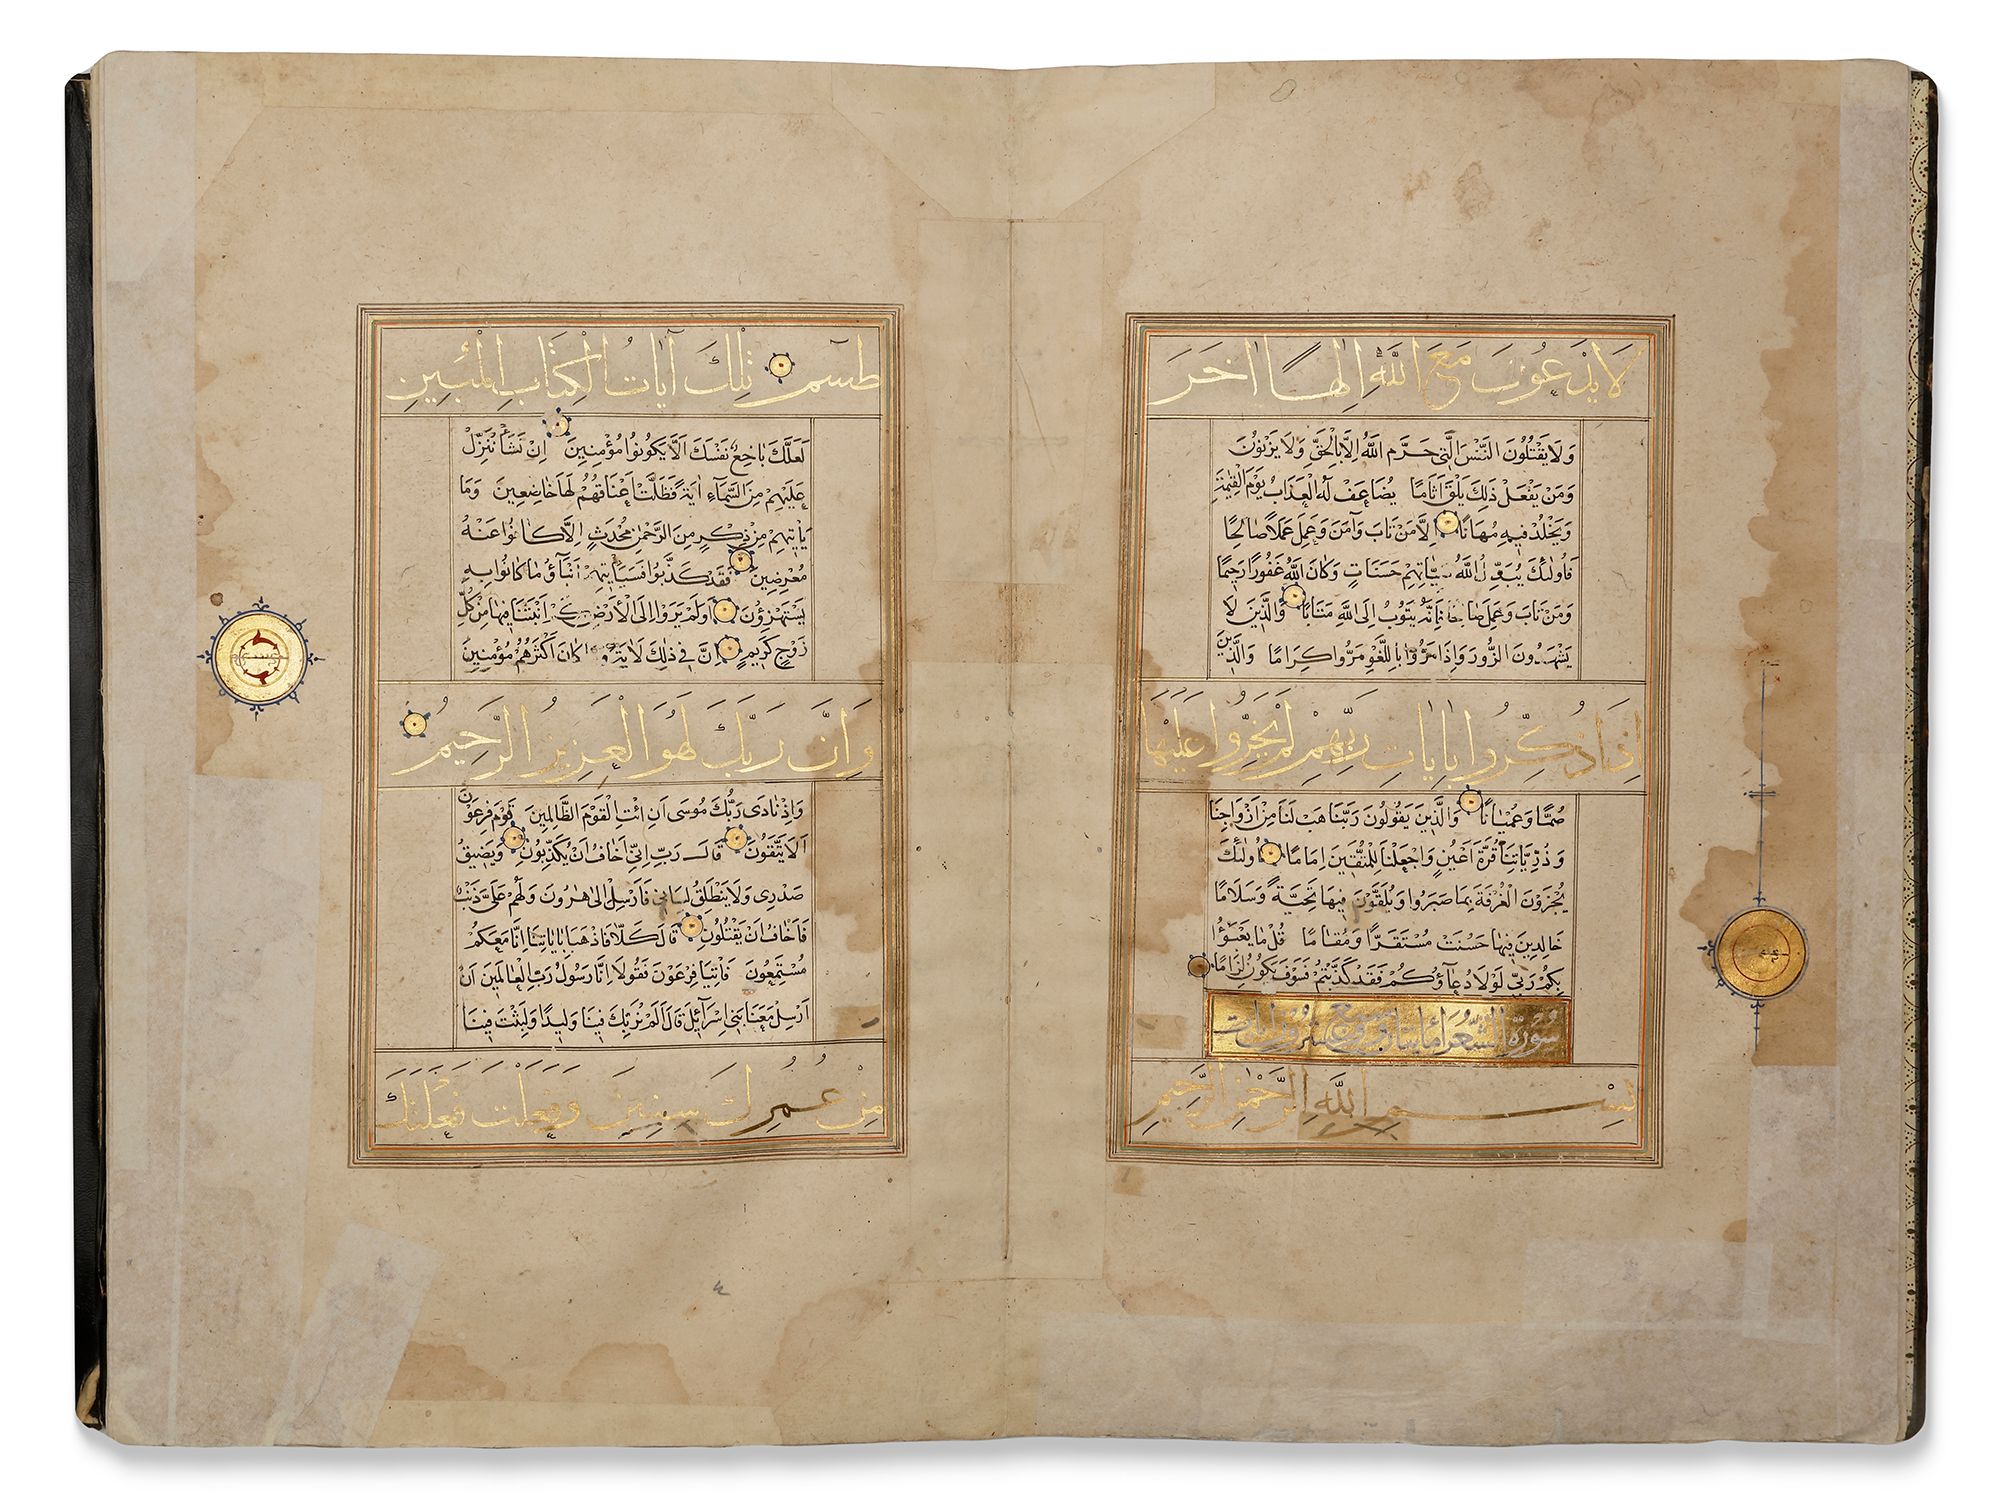 لَا يَدْعُونَ مَعَ اللَّهِ إِلَٰهًا آخَرَ
وَلَا يَقْتُلُونَ النَّفْسَ الَّتِي حَرَّمَ اللَّهُ إِلَّا بِالْحَقِّ وَلَا يَزْنُونَ
وَمَنْ يَفْعَلْ ذَلِكَ يَلْقَ أَثَامًا يُضَاعَفْ لَهُ الْعَذَابُ يَوْمَ الْقِيٰمَةِ
وَيَخْلُدْ فِيهِ مُهَانًا إِلَّا مَنْ تَابَ وَآمَنَ وَعَمِلَ عَمَلًا صَالِحًا
فَأُولَٰئِكَ يُبَدِّلُ اللَّهُ سَيِّئَاتِهِمْ حَسَنَاتٍ وَكَانَ اللَّهُ غَفُورًا رَحِيمًا
وَمَنْ تَابَ وَعَمِلَ صَالِحًا فَإِنَّهُ يَتُوبُ إِلَى اللَّهِ مَتَابًا وَالَّذِينَ لَا
يَشْهَدُونَ الزُّورَ وَإِذَا مَرُّوا بِاللَّغْوِ مَرُّوا كِرَامًا وَالَّذِينَ
إِذَا ذُكِّرُوا بِآيَاتِ رَبِّهِمْ لَمْ يَخِرُّوا عَلَيْهَا
صُمًّا وَعُمْيَانًا وَالَّذِينَ يَقُولُونَ رَبَّنَا هَبْ لَنَا مِنْ أَزْوَاجِنَا
وَذُرِّيَّاتِنَا قُرَّةَ أَعْيُنٍ وَاجْعَلْنَا لِلْمُتَّقِينَ إِمَامًا أُولَٰئِكَ
يُجْزَوْنَ الْغُرْفَةَ بِمَا صَبَرُوا وَيُلَقَّوْنَ فِيهَا تَحِيَّةً وَسَلَامًا
خَالِدِينَ فِيهَا حَسُنَتْ مُسْتَقَرًّا وَمُقَامًا قُلْ مَا يَعْبَؤُا
بِكُمْ رَبِّي لَوْلَا دُعَاؤُكُمْ فَقَدْ كَذَّبْتُمْ فَسَوْفَ يَكُونُ لِزَامًا
سُورَةُ الشُّعَرَا مائتان وسبع وعشرون آيات
بِسْمِ اللَّهِ الرَّحْمَٰنِ الرَّحِيمِ
طسٓمٓ تِلْكَ آيَاتُ الْكِتَابِ الْمُبِينِ
لَعَلَّكَ بَاخِعٌ نَفْسَكَ أَلَّا يَكُونُوا مُؤْمِنِينَ إِنْ نَشَأْ نُنَزِّلْ
عَلَيْهِمْ مِنَ السَّمَاءِ آيَةً فَظَلَّتْ أَعْنَاقُهُمْ لَهَا خَاضِعِينَ وَمَا
يَأْتِيهِمْ مِنْ ذِكْرٍ مِنَ الرَّحْمَٰنِ مُحْدَثٍ إِلَّا كَانُوا عَنْهُ
مُعْرِضِينَ فَقَدْ كَذَّبُوا فَسَيَأْتِيهِمْ أَنْبَٰٓؤُا مَا كَانُوا بِهِ
يَسْتَهْزِؤُنَ أَوَلَمْ يَرَوْا إِلَى الْأَرْضِ كَمْ أَنْبَتْنَا فِيهَا مِنْ كُلِّ
زَوْجٍ كَرِيمٍ إِنَّ فِي ذَلِكَ لَآيَةً وَمَا كَانَ أَكْثَرُهُمْ مُؤْمِنِينَ
وَإِنَّ رَبَّكَ لَهُوَ الْعَزِيزُ الرَّحِيمُ
وَإِذْ نَادَى رَبُّكَ مُوسَى أَنِ ائْتِ الْقَوْمَ الظَّالِمِينَ قَوْمَ فِرْعَوْنَ
أَلَا يَتَّقُونَ قَالَ رَبِّ إِنِّي أَخَافُ أَنْ يُكَذِّبُونِ وَيَضِيقُ
صَدْرِي وَلَا يَنْطَلِقُ لِسَانِي فَأَرْسِلْ إِلَى هٰرُونَ وَلَهُمْ عَلَيَّ ذَنْبٌ
فَأَخَافُ أَنْ يَقْتُلُونِ قَالَ كَلَّا فَاذْهَبَا بِآيَاتِنَا إِنَّا مَعَكُمْ
مُسْتَمِعُونَ فَأْتِيَا فِرْعَوْنَ فَقُولَا إِنَّا رَسُولُ رَبِّ الْعَالَمِينَ أَنْ
أَرْسِلْ مَعَنَا بَنِي إِسْرَآئِيلَ قَالَ أَلَمْ نُرَبِّكَ فِينَا وَلِيدًا وَلَبِثْتَ فِينَا
مِنْ عُمُرِكَ سِنِينَ وَفَعَلْتَ فَعْلَتَكَ